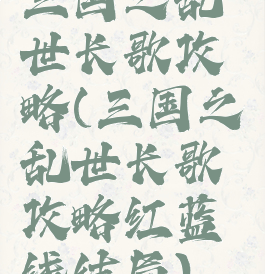 三国之乱
世长歌攻
略(三国之
乱世长歌
攻略红蓝
线结局)